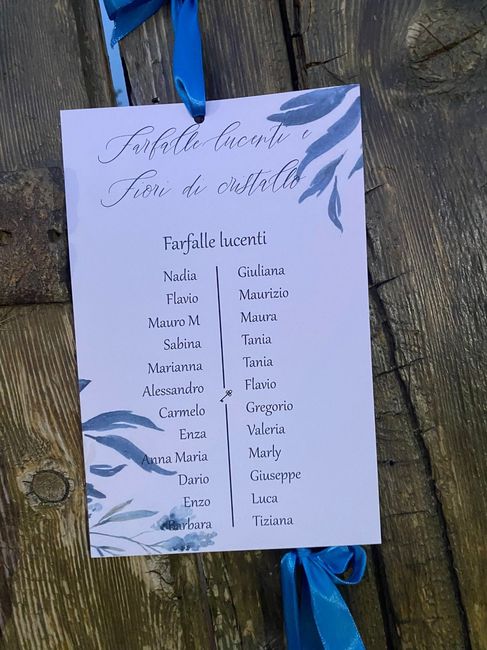 Farfalle lucenti e
Fiori di cristallo
Farfalle lucenti
Nadia
Flavio
Mauro M
Sabina
Marianna
Alessandro
Carmelo
Enza
Anna Maria
Dario
Enzo
Barbara
Giuliana
Maurizio
Maura
Tania
Tania
Flavio
Gregorio
Valeria
Marly
Giuseppe
Luca
Tiziana